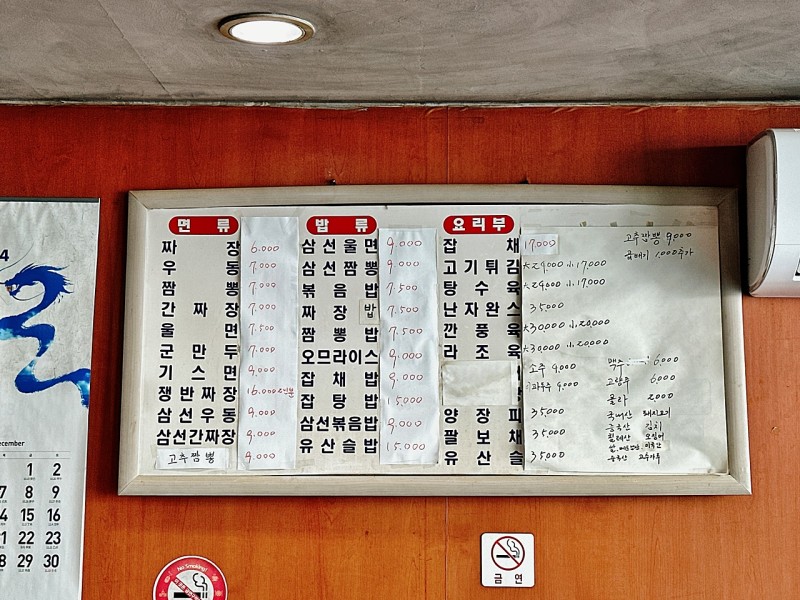 면 류
짜 장 6.000
우 동 7.000
짬 뽕 7.000
간 짜 장 7.000
울 면 7.500
군 만 두 7.000
기 스 면 9.000
쟁 반 짜 장 16.000 2인분
삼 선 우 동 9.000
삼선간짜장 9.000
고추짬뽕 9.000
밥 류
삼 선 울 면 9.000
삼 선 짬 뽕 9.000
볶 음 밥 7.500
짜 장 밥 7.500
짬 뽕 밥 7.500
오므라이스 9.000
잡 채 밥 9.000
잡 탕 밥 15.000
삼선볶음밥 9.000
유 산 슬 밥 15.000
요리부
잡 채 17.000
고 기 튀 김 大29,000 小17,000
탕 수 육 大29,000 小17,000
난 자 완 스 35000
깐 풍 육 大30,000 小20,000
라 조 육 大30,000 小20,000
양 장 피 35000
팔 보 채 35000
유 산 슬 35000
고추짬뽕 9,000
곱빼기 1,000추가
소주 4,000
맥주 6,000
고량주 6,000
콜라 2,000
국내산 돼지고기
중국산 김치
칠레산 오징어
중국산 고추가루
4
December
1 2
7 8 9
14 15 16
21 22 23
28 29 30
No Smoking!
금 연